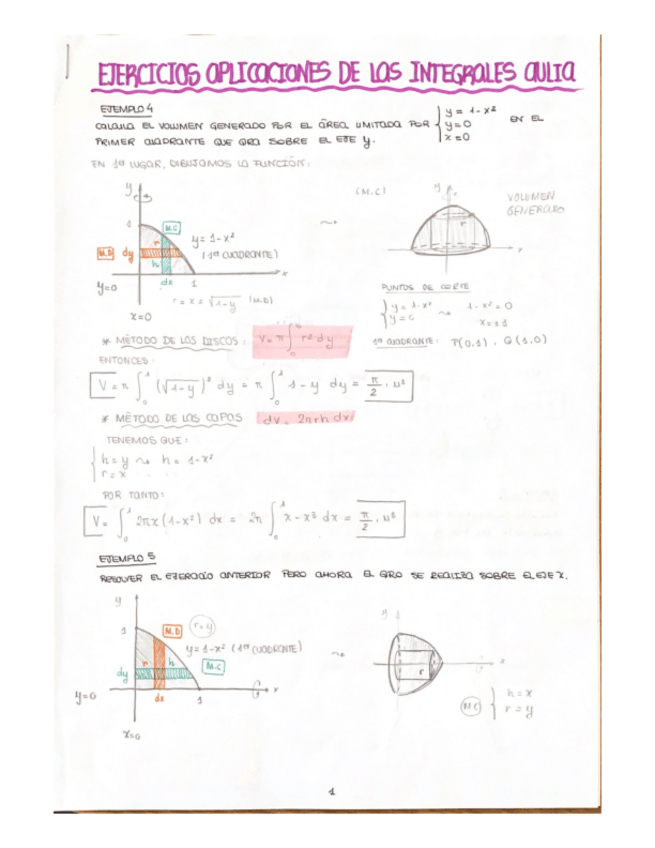 EJERCICIOS APLICACIONES DE LAS INTEGRALES AULIA
EJEMPLO 4
CALCULA EL VOLUMEN GENERADO POR EL ÁREA LIMITADA POR { y = 1-x² y=0 x=0 EN EL
PRIMER CUADRANTE QUE GIRA SOBRE EL EJE y.
EN 1er LUGAR, DIBUJAMOS LA FUNCIÓN:
y
1
M.C
r
M.D
dy
h
dx
1
x
y = 1-x²
(1er CUADRANTE)
y=0
x=0
r = x = √1-y (M.D)
(M.C)
y
r
x
VOLUMEN
GENERADO
PUNTOS DE CORTE
{ y = 1-x² y = 0 ⇝ 1-x² = 0
x=±1
1er CUADRANTE: P(0,1), Q(1,0)
* MÉTODO DE LOS DISCOS: V= π∫ r² dy
ENTONCES:
V = π ∫₀¹ (√1-y)² dy = π ∫₀¹ 1-y dy = π/2 . u³
* MÉTODO DE LAS CAPAS dV = 2πrh dx
TENEMOS QUE:
{ h = y ⇝ h = 1-x²
r = x
POR TANTO:
V = ∫₀¹ 2πx (1-x²) dx = 2π ∫₀¹ x-x³ dx = π/2 . u³
EJEMPLO 5
RESOLVER EL EJERCICIO ANTERIOR PERO AHORA EL GIRO SE REALIZA SOBRE EL EJE X.
y
1
M.D
r=y
y = 1-x² (1er CUADRANTE)
r
h
M.C
dy
y=0
dx
1
x
x=0
y
r
x
M.C { h = x
r = y
1